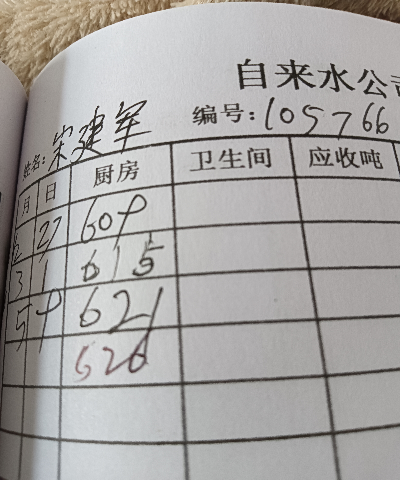 自来水公司
姓名: 宋建军 编号: 105766
月 日 厨房 卫生间 应收吨
27 609
3 1 615
5 9 621
526